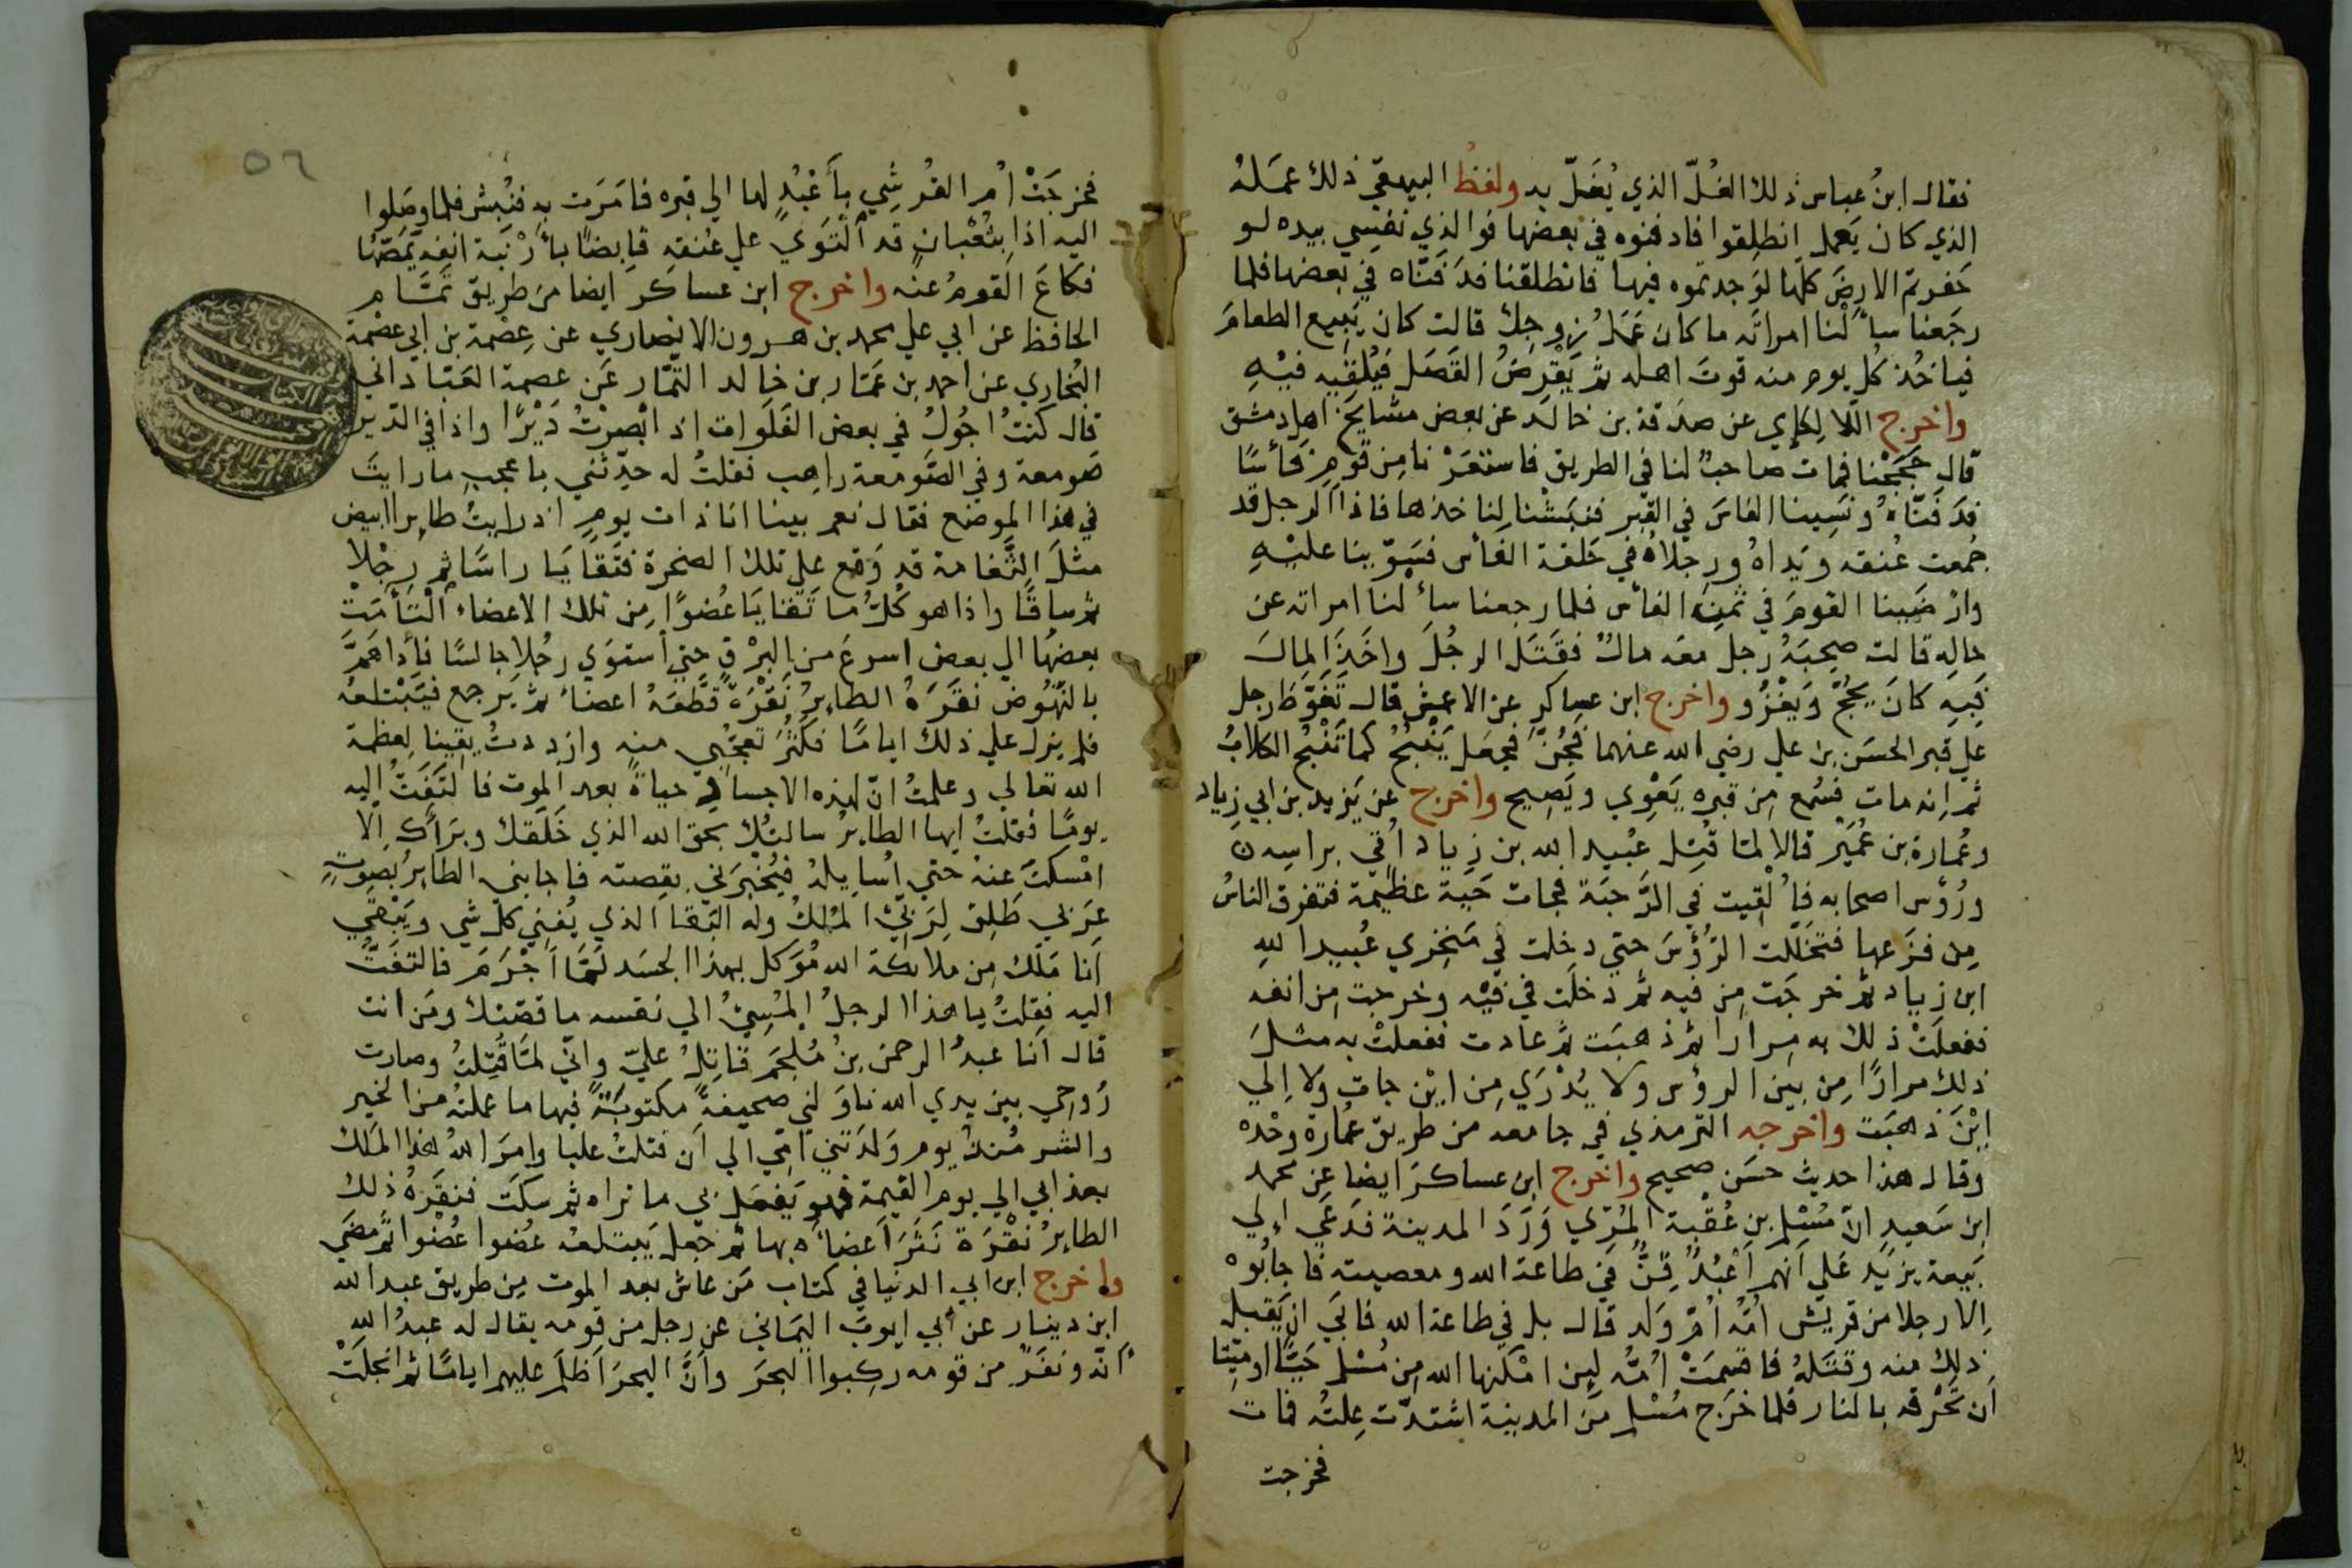 فقال ابنُ عباس ذلك الغُلّ الذي يُغَلّ به ولفظُ البيهقي ذلك عمَلهُ
الذي كان يَعمل انطلِقوا فادفنوه في بعضها فوالذي نفسِي بيده لو
حَفرتم الارضَ كلها لوَجدتموه فيها فانطلقنا فدَفَنّاه في بعضها فلما
رجَعنا سأَلْنا امراتَه ما كان عَمَلُ زوجك قالت كان يَبيع الطعامَ
فياخُذ كل يوم منه قوتَ اهله ثم يَقْرِضُ القَصَل فيُلقِيه فيْهِ
واخرج اللالِكإي عن صدَقة بن خالد عن بعض مشايخ اهل دمشق
قال حَجَجْنا فمات صاحبٌ لنا في الطريق فاستعَرْنا مِن قومٍ فَأسًا
فدَفَنّاهُ ونَسِينا الفاسَ في القبر فنبَشْنا لِنا خذها فاذا الرجل قد
جُمعت عُنقه ويَداهُ ورِجلاهُ في حَلقة الفأس فسَوّينا عليْهِ
وارْضَينا القومَ في ثمنِ الفأس فلما رجعنا سأَلنا امراته عن
حالِه قالت صحِبَهُ رجل معَه مالٌ فقَتَل الرجُلَ واخَذ المالَ
فَبِه كانَ يحُجّ ويَغْزُو واخرج ابن عساكر عن الاعمش قال تَغَوّط رجل
علي قبر الحسَن بن علي رضي الله عنهما فجُنَّ فجعَل يَنْبَحُ كما تَنْبح الكلابُ
ثم اِنه مات فسُمع مِن قبره يَعْوِي ويَصِيح واخرج عن يَزيد بن ابي زِياد
وعُمارة بن عُمَير قالا لمّا قُتِل عُبيد الله بن زِياد اُتي براسِه
ورُؤس اصحابه فاُلْقِيت في الرَّحبَة فجات حَيّة عظيمة فتفرق الناسُ
مِن فزَعها فتخَلّلت الرُؤسَ حتي دخلت في مَنخِري عُبيد اللهِ
ابن زِياد ثم خرجَت مِن فيه ثم دخلَت في فِيْه وخرجت مِن انفه
ففعلَتْ ذلك به مِرارا ثم ذهبَت ثم عادت ففعلتْ به مثلَ
ذلك مرارًا مِن بَين الرؤس ولا يُدْرَي مِن ايْن جات ولا اِلي
ايْنَ ذهبَت واخرجه الترمذي في جامعه من طريق عُمارة وحْده
وقال هذا حديث حسَن صحيح واخرج ابن عساكرَ ايضا عن محمد
ابن سَعيدٍ انّ مُسْلم بن عُقْبة المُرّي وَرَدَ المدينة فدَعَي اِلي
بَيعة يزيد عَلي اَنهم اَعْبُدٌ قِنٌّ في طاعة الله ومعصيته فاَجابُوه
اِلا رجلا من قريش اُمُّه اُمّ وَلد قال بل في طاعة الله فابَي ان يَقبل
ذلك منه وقتَلهُ فاقسمَتْ اُمُّه لئِن امْكنها الله مِن مُسْلم حَيًّا اوميِّتا
اَن تَحْرقه بالنار فلما خرَج مُسْلم منَ المدينة اشتدّت عِلتُه فمات
فخرجت
٥٦
فخرجَتْ اُم القرشي بأَعْبُدٍ لها الي قبره فامَرَت بِه فنُبِش فلما وصَلوا
اليه اذا بثُعْبانٍ قد الْتَوَي علي عُنقِه قابِضا بأَرْنَبة انفه يَمَصّها
فكاعَ القومُ عنْه واخرج ابن عساكر ايضا من طريق تمّام
الحافظ عن ابي علي محمد بن هرون الانصاري عن عِصْمَة بن ابي عصْمة
البُخاري عن احمد بن عَمّار بن خالد التمّار عَن عصمة العَبّاداني
قال كنتُ اجُولُ في بعض الفَلَوات اذ ابْصرْتُ دَيْرًا واذا في الدّير
صَومعة وفي الصَّومعة راهِب فقلتُ له حدّثني باعجبِ ما رايتَ
في هذا الموضع فقال نعم بينا انا ذات يومٍ اذ رايتُ طايِرا ابيض
مثلَ النَّعامة قد وَقع علي تلك الصخرة فتَقايَا راسًا ثم رِجْلا
ثم ساقًا واذا هو كُلّ ما تَقايَا عُضوًا مِن تلك الاعضاء الْتَأمَتْ
بعضهُا الي بعض اسرعَ من البرْقِ حتي استوَي رجُلا جالسًا فاذا هَمَّ
بالنّهُوض نقَرَهُ الطايِرُ نَقْرَةً قطَّعَهُ اعضاءً ثم يَرجع فيَبْتلعُه
فلم يزل علي ذلك ايامًا فكثُرَ تعجّبي منه وازددتُ يقينا لِعظمة
الله تعالي وعلمتُ انّ لهذه الاجساد حياةً بعد الموت فالتفَتُّ اليه
يومًا فقلتُ ايها الطايِرُ سالتُك بحق الله الذي خَلَقك وبَرَأكَ اِلا
امْسكْتَ عنهُ حتي اُسايِلهُ فيُخْبرَني بقصته فاجابني الطايِرُ بصوتٍ
عَرَبي طَلِق لِرَبّيَ المُلكُ وله البَقا الذي يُفني كل شي ويَبْقَي
اَنا مَلَك مِن ملائكة الله مُوَكل بهذا الجسَد لِمَا اَجْرَمَ فالتفَتُّ
اليه فقلتُ يا هذا الرجلُ المُسِيْءُ الي نفسه ما قصّتك ومَن انت
قال اَنا عبدُ الرحمن بنُ مُلجَم قاتِلُ عليّ وانّي لمّا قُتِلتُ وصارت
رُوحي بين يدي الله ناوَلني صحيفةً مكتوبَةً فيها ما عملتُه من الخير
والشر مُنذُ يوم وَلدَتني اُمّي الي اَن قتلتُ عليا وامَرَ اللهُ هذا المَلك
بعذابي الي يوم القيمة فهو يَفعل بي ما تراه ثم سكَت فنقَرَهُ ذلك
الطايِرُ نَقْرَة نَثَرَ اَعضاَه بها ثم جعل يَبتلعه عُضوا عُضْوا ثم مضَي
واخرج ابن ابي الدنيا في كتاب مَن عاش بعد الموت مِن طريق عبد الله
ابن دينار عن اَبي ايوبَ اليَماني عن رجل من قومه يقال له عبدُ اللهِ
انّه ونفَرٌ من قومه ركِبوا البحرَ واَنَّ البحرَ اَظلَم عليهم ايامًا ثم انجلَتْ